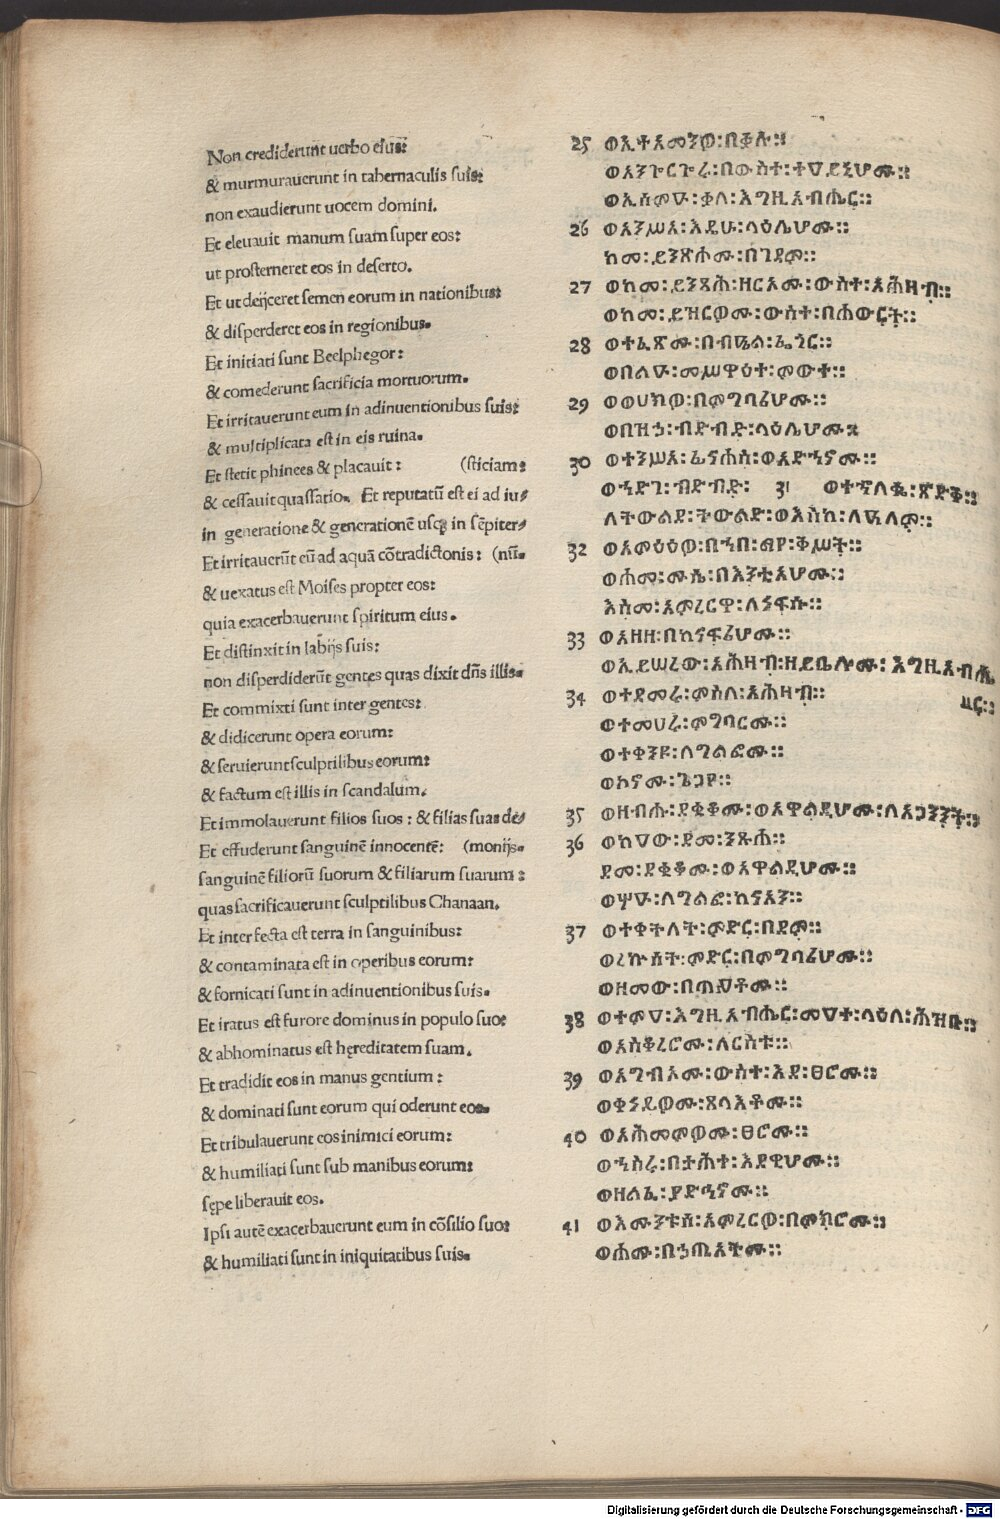 Non crediderunt uerbo eius:
& murmurauerunt in tabernaculis suis:
non exaudierunt uocem domini.
Et eleuauit manum suam super eos:
ut prosterneret eos in deserto.
Et ut deijceret semen eorum in nationibus:
& disperderet eos in regionibus.
Et initiati sunt Beelphegor:
& comederunt sacrificia mortuorum.
Et irritauerunt eum in adinuentionibus suis:
& multiplicata est in eis ruina.
Et stetit phinees & placauit: (sticiam:
& cessauit quassatio. Et reputatū est ei ad iu/
in generatione & generationē usq; in sēpiter/
Et irritauerūt eū ad aquā cōtradictonis: (nū.
& uexatus est Moises propter eos:
quia exacerbauerunt spiritum eius.
Et distinxit in labijs suis:
non disperdiderūt gentes quas dixit dn̄s illis.
Et commixti sunt inter gentes:
& didicerunt opera eorum:
& seruierunt sculptilibus eorum:
& factum est illis in scandalum.
Et immolauerunt filios suos: & filias suas de/
Et effuderunt sanguinē innocentē: (monijs.
sanguinē filiorū suorum & filiarum suarum:
quas sacrificauerunt sculptilibus Chanaan.
Et interfecta est terra in sanguinibus:
& contaminata est in operibus eorum:
& fornicati sunt in adinuentionibus suis.
Et iratus est furore dominus in populo suo:
& abhominatus est hęreditatem suam.
Et tradidit eos in manus gentium:
& dominati sunt eorum qui oderunt eos.
Et tribulauerunt eos inimici eorum:
& humiliati sunt sub manibus eorum:
sępe liberauit eos.
Ipsi autē exacerbauerunt eum in cōsilio suo:
& humiliati sunt in iniquitatibus suis.
25 ወኢተአመንዎ፡በቃሉ።
ወአንጐርጐሩ፡በውስተ፡ተዓይኒሆሙ።
ወኢሰምዑ፡ቃለ፡እግዚአብሔር።
26 ወአንሥአ፡እዴሁ፡ላዕሌሆሙ።
ከመ፡ይንጽሖሙ፡በገዳም።
27 ወከመ፡ይንጻሕ፡ዘርአሙ፡ውስተ፡አሕዛብ።
ወከመ፡ይዝርዎሙ፡ውስተ፡በሐውርት።
28 ወተፈጸሙ፡በብዔል፡ፌጎር።
ወበልዑ፡መሥዋዕተ፡ምውተ።
29 ወወሀክዎ፡በምግባሪሆሙ።
ወበዝኃ፡ብድብድ፡ላዕሌሆሙ።
30 ወተንሥአ፡ፊናሐስ፡ወአድኀኖሙ።
ወኀድገ፡ብድብድ፡ 31 ወተኈለቈ፡ጽድቅ።
ለትውልደ፡ትውልድ፡ወእስከ፡ለዓለም።
32 ወአምዕዕዎ፡በኀበ፡ማየ፡ቅሥት።
ወሐመ፡ሙሴ፡በእንቲአሆሙ።
እስመ፡አምረርዋ፡ለነፍሱ።
33 ወአዘዘ፡በከናፍሪሆሙ።
ወኢይሠረው፡አሕዛብ፡ዘይቤሎሙ፡እግዚአብሔ
ር።
34 ወተደመሩ፡ምስለ፡አሕዛብ።
ወተመሀሩ፡ምግባርሙ።
ወተቀንዩ፡ለግልፎሙ።
ወኮኖሙ፡ጌጋየ።
35 ወዘብሑ፡ደቂቆሙ፡ወአዋልዲሆሙ፡ለአጋንንት።
36 ወከዓው፡ደመ፡ንጹሐ።
ደመ፡ደቂቆሙ፡ወአዋልዲሆሙ።
ወሦዑ፡ለግልፎ፡ከናአን።
37 ወተቀትለት፡ምድር፡በደም።
ወረኵሰት፡ምድር፡በምግባሪሆሙ።
ወዘመው፡በጣዖቶሙ።
38 ወተምዓ፡እግዚአብሔር፡መዓተ፡ላዕለ፡ሕዝቡ።
ወአስቆረሮሙ፡ለርስቱ።
39 ወአግብአሙ፡ውስተ፡እደ፡ፀሮሙ።
ወቀነይዎሙ፡ጸላእቶሙ።
40 ወአሕመምዎሙ፡ፀሮሙ።
ወኀስሩ፡በታሕተ፡እደዊሆሙ።
ወዘልፈ፡ያድኅኖሙ።
41 ወእሙንቱሰ፡አምረርዎ፡በምክሮሙ።
ወሐሙ፡በኃጢአቶሙ።
Digitalisierung gefördert durch die Deutsche Forschungsgemeinschaft - DFG